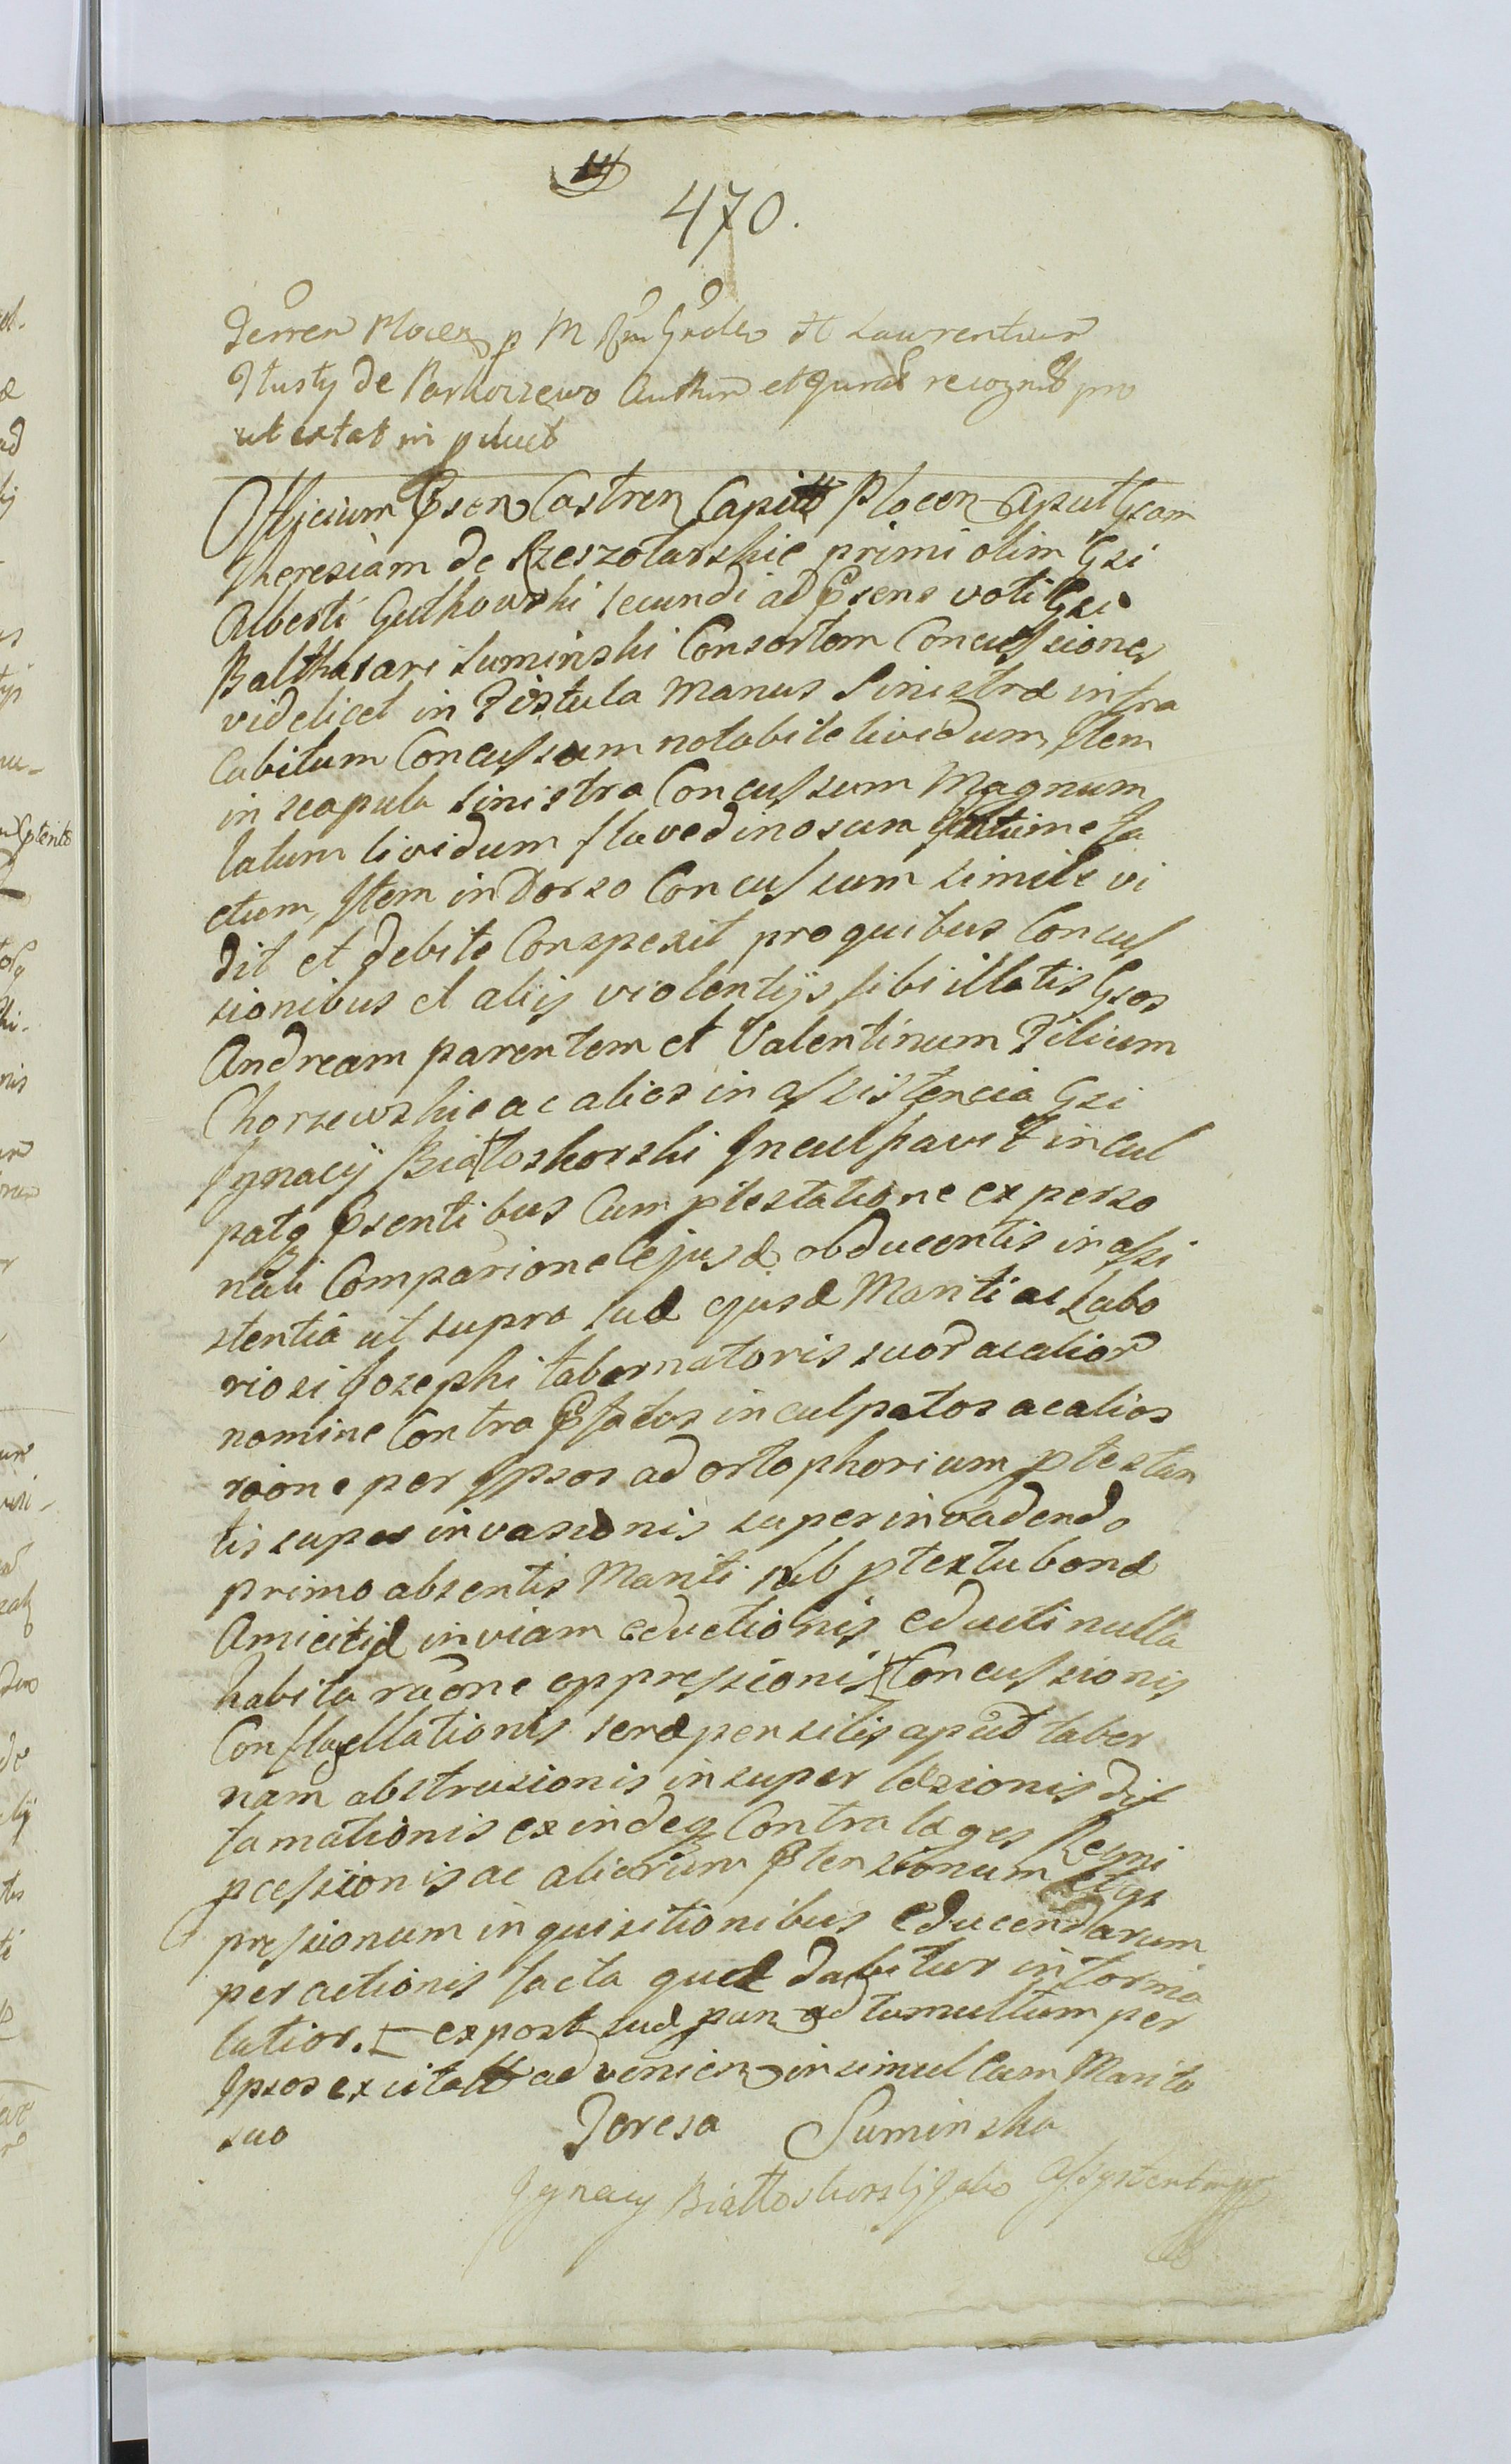 470.
Terren Plocen p M Rm Grales et Laurentium
Tlusty de Parkoczewo Authen et Jurat recognit pro
ut extat in pduct
Officium Psens Castren Capitt Plocen Aput Gsam
Theresiam de Rzeszotarskie primi olim Gsi
Alberti Gutkowski secundi ad Psens voti Gsi
Balthasari Suminski Consortem Concussiones
videlicet in Fistula Manus Sinistræ infra
Cubitum Concussum notabile lividum, Item
in scapula sinistra Concussum Magnum
latum lividum flavedinosum Intumefa
ctum, Item in Dorso Concussum simile vi
dit et debite Conspexit pro quibus Concus
sionibus et alijs violentijs sibi illatis Gsos
Andream parentem et Valentinum Filium
Chorzewskie ac alios in assistencia Gsi
Ignacij Białłoskorski Inculpavit incul
patq Psentibus Cum ptestatione ex perso
nali Comparione ejusd obducentis in assi
stentia ut supra suæ ejusd Mariti ac Labo
riosi Josephi tabernatoris suor ac alior
nomine Contra Pfatos inculpatos ac alios
raone per Ipsos ad ortophorium ptestan
tis super invasionis superinvadendo
primo absentis Mariti sub ptextu bonæ
Amicitiæ in viam eductionis educti nulla
habita raone oppressionis Concussionis
Conflagellationis seræ pensilis apud taber
nam abstrusionis insuper læsionis dif
famationis exindeq Contra leges Regni
pcessionis ac aliarum Ptensionum et
pressionum inquisitionibus educendarum
per actionis facta quæ dabitur informa
latior. expost suæ pan ad tumultum per
Ipsos excitatt advenien insimul Cum Marito
suo
Teresa Suminska
Ignacy Białłoskorski Jako Assystent mpp